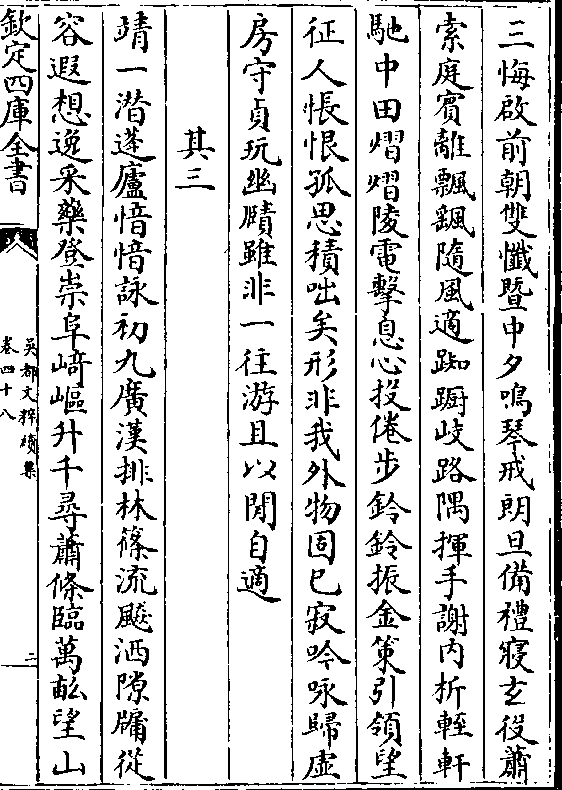 三悔啟前朝雙懺暨中夕鳴琴戒朗旦備禮寢玄役蕭
索庭賓離飄飄隨風適踟蹰岐路隅揮手謝内析輕軒
馳中田熠熠陵電擊息心投倦步鈴鈴振金策引領望
征人悵恨孤思積咄矣形非我外物固已寂吟咏歸虚
房守貞玩幽賾雖非一往游且以閒自適
其三
靖一潛蓬廬愔愔詠初九廣漢排林篠流飈洒隙牖從
容遐想逸采藥登崇阜崎嶇升千尋蕭條臨萬畝望山
欽定四庫全書
吳都文粹續集
卷四十八
二